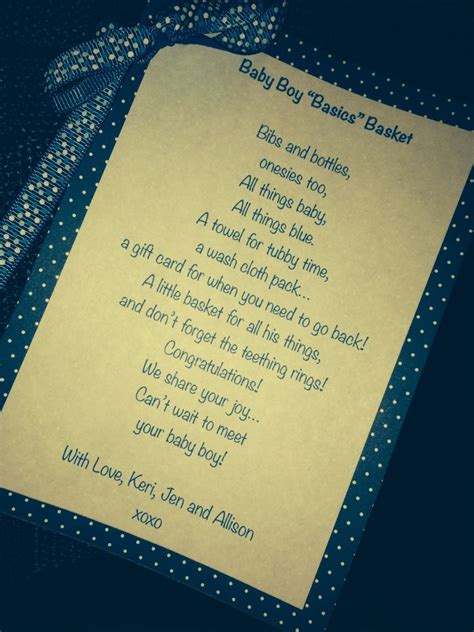 Baby Boy "Basics" Basket
Bibs and bottles,
onesies too,
All things baby,
All things blue.
A towel for tubby time,
a wash cloth pack...
a gift card for when you need to go back!
A little basket for all his things,
and don't forget the teething rings!
Congratulations!
We share your joy...
Can't wait to meet
your baby boy!
With Love, Keri, Jen and Allison
xoxo